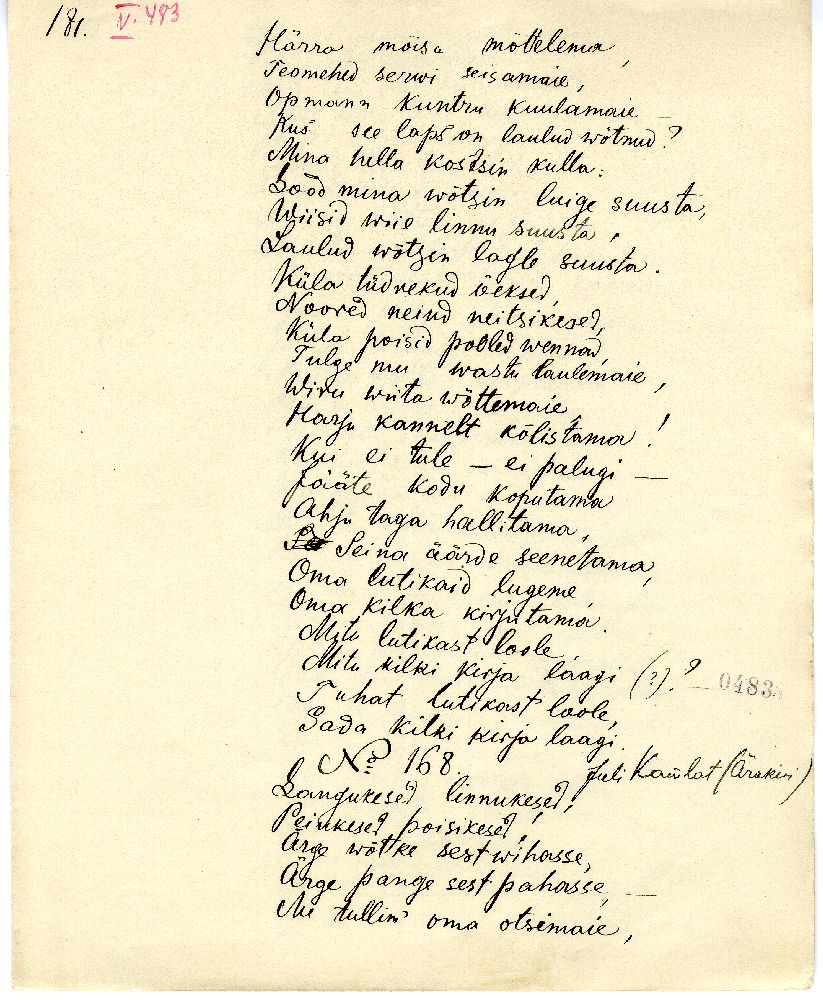 181. V. 483
Härra mõisa mõttelema,
Teomehed serwi seisamaie,
Opmann kuntru kuulamaie —
Kus see laps on laulud wõtnud?
Mina hella kostsin kulla:
Sööd mina wõtsin luige suusta,
Wiisid wiie linnu suusta,
Laulud wõtsin lagle suusta.
Küla tüdrekud öeksed,
Noored neiud neitsikesed,
Küla poisid pooled wennad,
Tulge mu wastu laulemaie,
Wiru wiita wõttemaie,
Harju kannelt kõlistama!
Kui ei tule — ei palugi —
Jääte kodu koputama
Ahju taga hallitama,
Seina äärde seenetama,
Oma lutikaid lugeme,
Oma kilka kirjutama.
Mitu lutikast loole,
Mitu kilki kirja laagi (?).?
0483
Tuhat lutikast loole,
Sada kilki kirja laagi.
No 168. Juli (Ärakiri)
Langukesed linnukesed,
Peiukesed poisikesed,
Ärge wõtke sest wihasse,
Ärge pange sest pahasse, —
Me tullim' oma otsimaie,